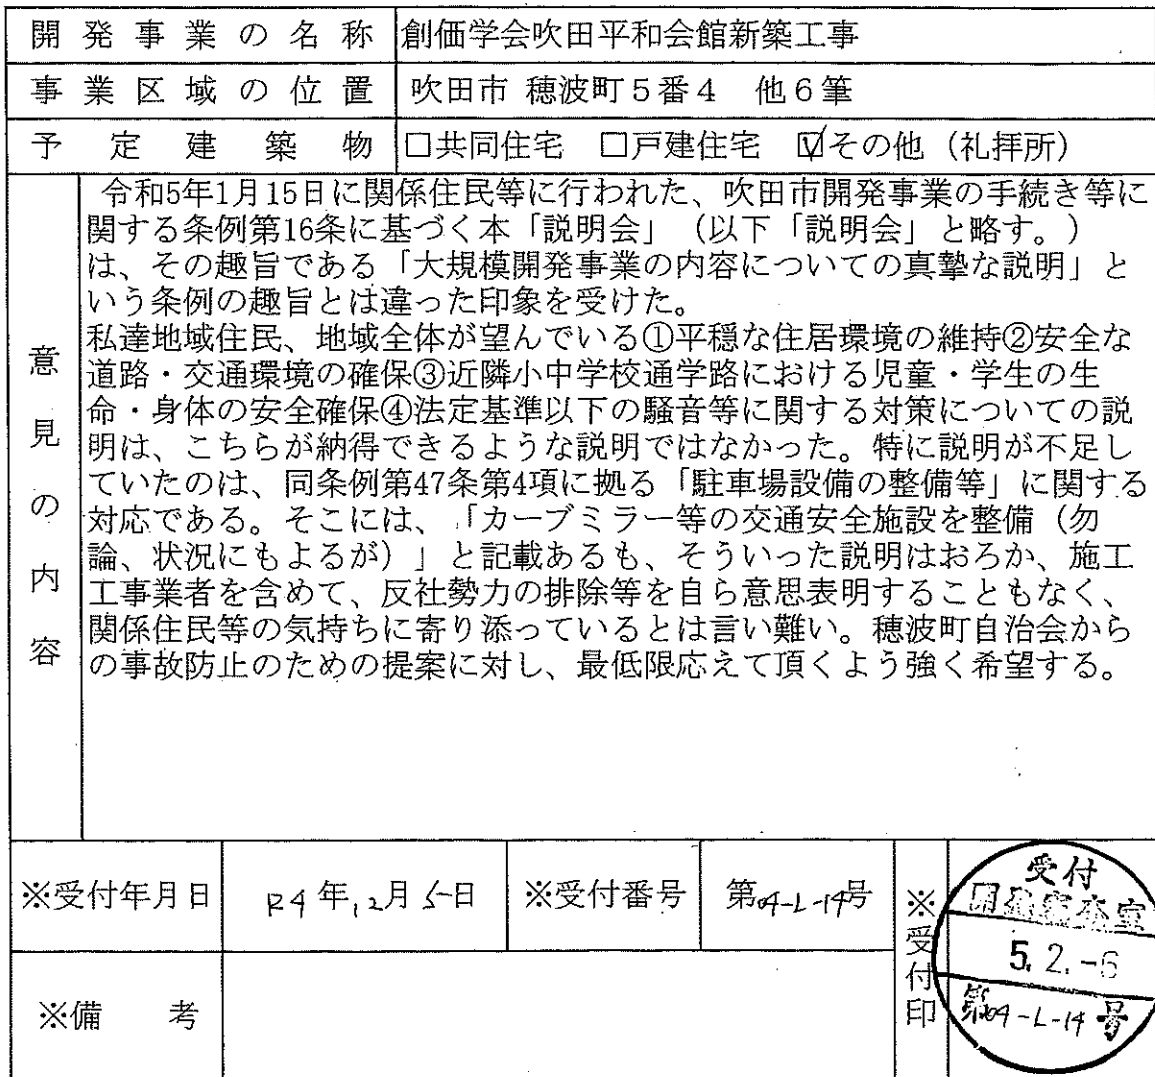 開発事業の名称 創価学会吹田平和会館新築工事
事業区域の位置 吹田市 穂波町5番4 他6筆
予定建築物 □共同住宅 □戸建住宅 ☑その他（礼拝所）
意見の内容
令和5年1月15日に関係住民等に行われた、吹田市開発事業の手続き等に
関する条例第16条に基づく本「説明会」（以下「説明会」と略す。）
は、その趣旨である「大規模開発事業の内容についての真摯な説明」と
いう条例の趣旨とは違った印象を受けた。
私達地域住民、地域全体が望んでいる①平穏な住居環境の維持②安全な
道路・交通環境の確保③近隣小中学校通学路における児童・学生の生
命・身体の安全確保④法定基準以下の騒音等に関する対策についての説
明は、こちらが納得できるような説明ではなかった。特に説明が不足し
ていたのは、同条例第47条第4項に拠る「駐車場設備の整備等」に関する
対応である。そこには、「カーブミラー等の交通安全施設を整備（勿
論、状況にもよるが）」と記載あるも、そういった説明はおろか、施工
工事業者を含めて、反社勢力の排除等を自ら意思表明することもなく、
関係住民等の気持ちに寄り添っているとは言い難い。穂波町自治会から
の事故防止のための提案に対し、最低限応えて頂くよう強く希望する。
※受付年月日 R4年12月5日 ※受付番号 第04-L-14号
※受付印
受付
開発審査室
5.2.-6
第04-L-14号
※備考